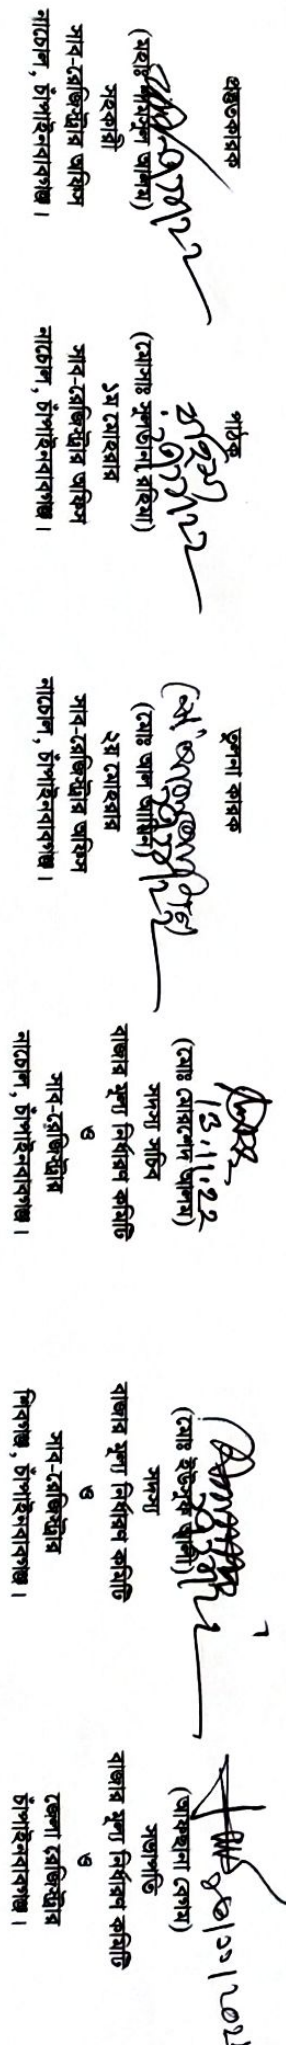 প্রস্তুতকারক
(মোহাঃ শামসুল আলম)
সহকারী
সাব-রেজিস্ট্রার অফিস
নাচোল, চাঁপাইনবাবগঞ্জ।
পাঠক
(মোসাঃ সুলতানা রহিমা)
১ম মোহরার
সাব-রেজিস্ট্রার অফিস
নাচোল, চাঁপাইনবাবগঞ্জ।
তুলনা কারক
(মোঃ আল আমিন)
২য় মোহরার
সাব-রেজিস্ট্রার অফিস
নাচোল, চাঁপাইনবাবগঞ্জ।
13.11.22
(মোঃ মোরশেদ আলম)
সদস্য সচিব
বাজার মূল্য নির্ধারণ কমিটি
ও
সাব-রেজিস্ট্রার
নাচোল, চাঁপাইনবাবগঞ্জ।
(মোঃ ইউসুফ আলী)
সদস্য
বাজার মূল্য নির্ধারণ কমিটি
ও
সাব-রেজিস্ট্রার
শিবগঞ্জ, চাঁপাইনবাবগঞ্জ।
(আফছানা বেগম)
সভাপতি
বাজার মূল্য নির্ধারণ কমিটি
ও
জেলা রেজিস্ট্রার
চাঁপাইনবাবগঞ্জ।